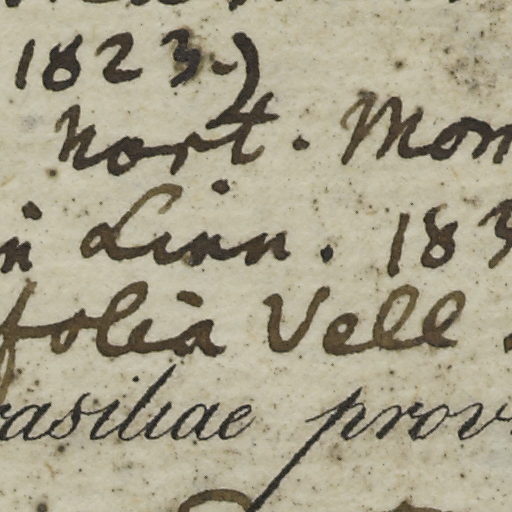 1823.)
hort. Mon
in Linn. 183
folia Vell.
rasiliae prov